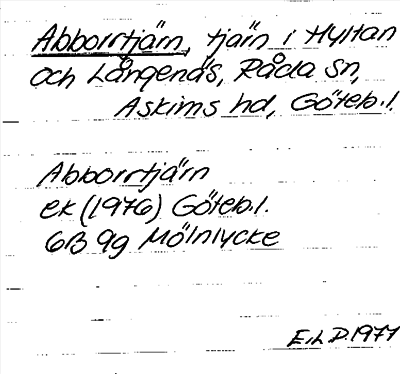 Abborrtjärn, tjärn i Hyltan
och Långenäs, Råda sn,
Askims hd, Göteb.l.
Abborrtjärn
ek (1976) Göteb.l.
6B 9g Mölnlycke
E.L D.1977